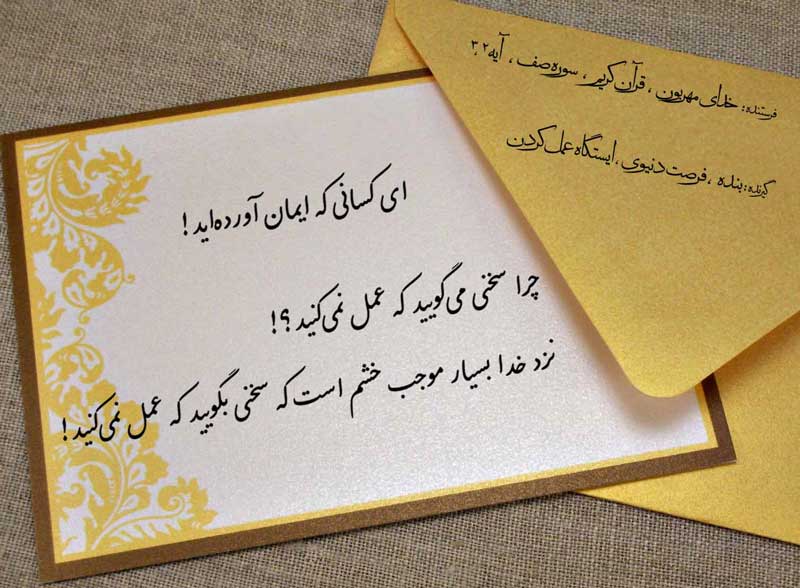 فرستنده: خدای مهربون ، قرآن کریم ، سوره صف ، آیه ۲،۳
گیرنده: بنده ، فرصت دنیوی، ایستگاه عمل کردن
ای کسانی که ایمان آورده‌اید!
چرا سخنی می‌گویید که عمل نمی‌کنید؟!
نزد خدا بسیار موجب خشم است که سخنی بگویید که عمل نمی‌کنید!